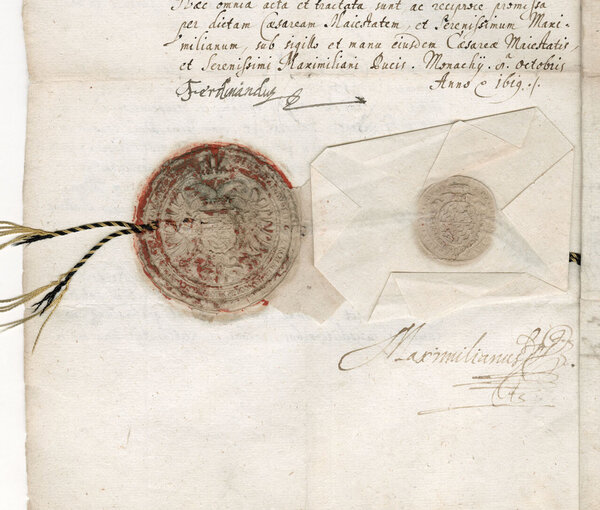 Hæc omnia acta et tractata sunt ac reciproce promissa
per dictam Cæsaream Maiestatem, et Serenissimum Maxi-
milianum, sub sigillo et manu eiusdem Cæsareæ Maiestatis,
et Serenissimi Maximiliani Ducis. Monachij octobris
Ferdinandus
Anno 1619.
Maximilianus